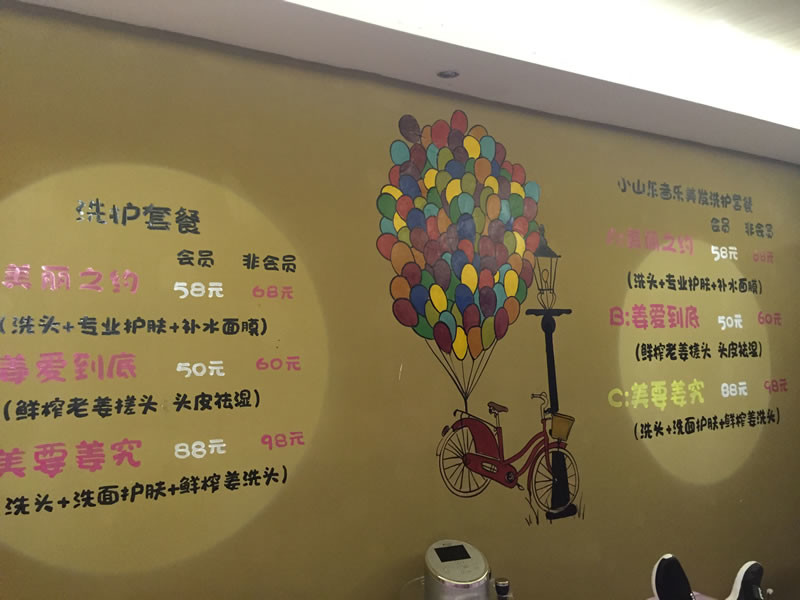 洗护套餐
会员 非会员
美丽之约 58元 68元
(洗头+专业护肤+补水面膜)
姜爱到底 50元 60元
(鲜榨老姜搓头 头皮祛湿)
美要姜究 88元 98元
洗头+洗面护肤+鲜榨姜洗头)
小山乐音乐美发洗护套餐
会员 非会员
美丽之约 58元 68元
(洗头+专业护肤+补水面膜)
B:姜爱到底 50元 60元
(鲜榨老姜搓头 头皮祛湿)
C:美要姜究 88元 98元
(洗头+洗面护肤+鲜榨姜洗头)